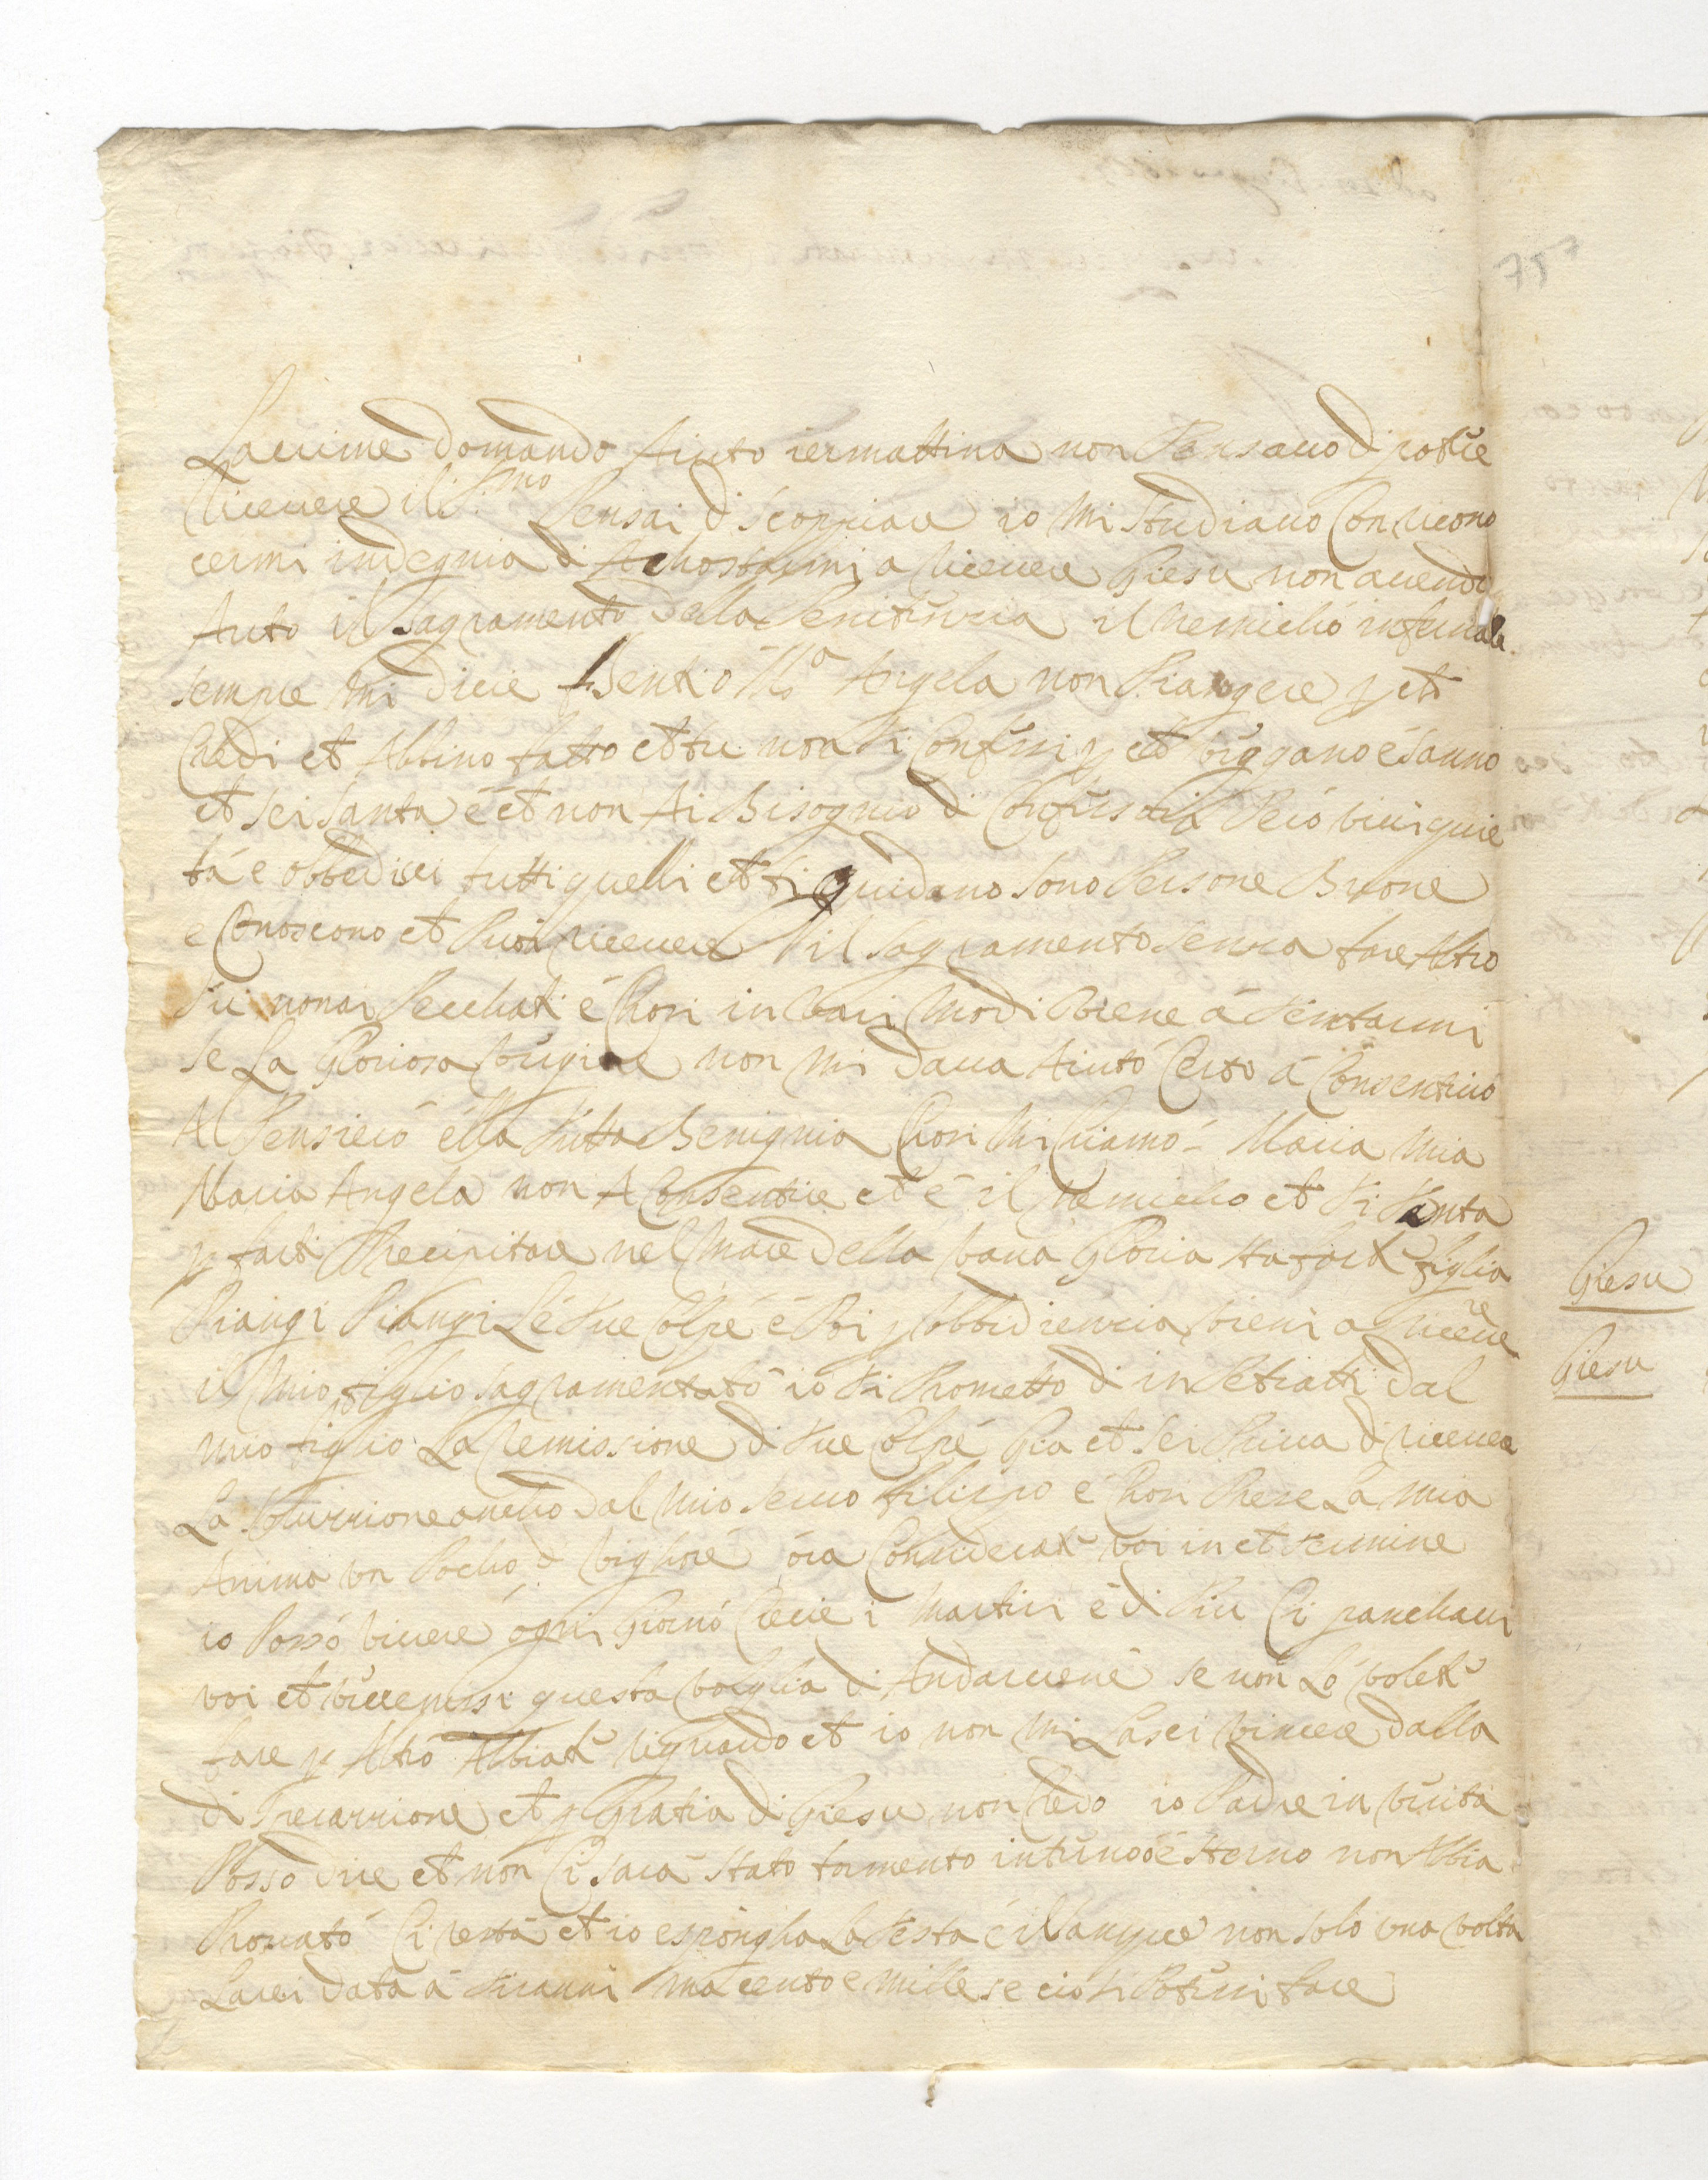 757
Lacrime domando Aiuto iermattina non Pensavo di potere
Ricevere il S.mo Pensai di scoppiare io Mi studiavo Con ricono
cermi indegnia di Achostarmi a Ricevere Giesu non avendo
Auto il Sagramento della Penitenzia il nemicho infernale
sempre Mi dicie Senti o M.a Angela non Piangere p et
Credi et Abbino fatto et tu non ti Confessi p et veggano e sanno
et sei santa e et non Ai Bisognio di Confessarti Pero vivi quie
ta e obbedisci tutti quelli et ti guidano sono Persone Buone
e Conoscono et Puoi Ricevere il Sagramento senza fare Altro
tu non ai Pecchati e Chosi in vari Modi viene a tentarmi
se La Gloriosa vergine non Mi dava Aiuto Certo a Consentivo
Al Pensiero ella tutta Benignia Chosi Mi Chiamo Maria Mia
Maria Angela non A Consentire et e il nemicho et ti tenta
p farti Precipitare nel Mare della vana Gloria sta forte figlia
Piangi Piangi Le tue Colpe e Poi p obbidienzia vieni a Ricevere
il Mio figlio sagramentato io ti Prometto di inPetrarti dal
mio figlio La remissione di tue Colpe Gia et sei Priva di ricevere
La soluzzione ancho dal Mio servo filippo e Chosi Prese La mia
Anima un Pocho di vighore ora Considerate voi in et termine
io Posso vivere ogni Giorno Crecie i Martiri e di Piu Ci Manchavi
voi et vi venissi questa voglia di Andarvene se non Lo volete
fare p Altro Abbiate riguardo et io non Mi Lasci vincere dalla
diSperazzione et p Gratia di Giesu non Credo io Padre in verita
Posso dire et non Ci sara stato tormento interno o esterno non Abbia
Provato Ci resta et io espongha La testa e il sangue non solo una volta
Larei data a tiranni Ma cento e mille se cio si Potessi fare
Giesu
Giesu